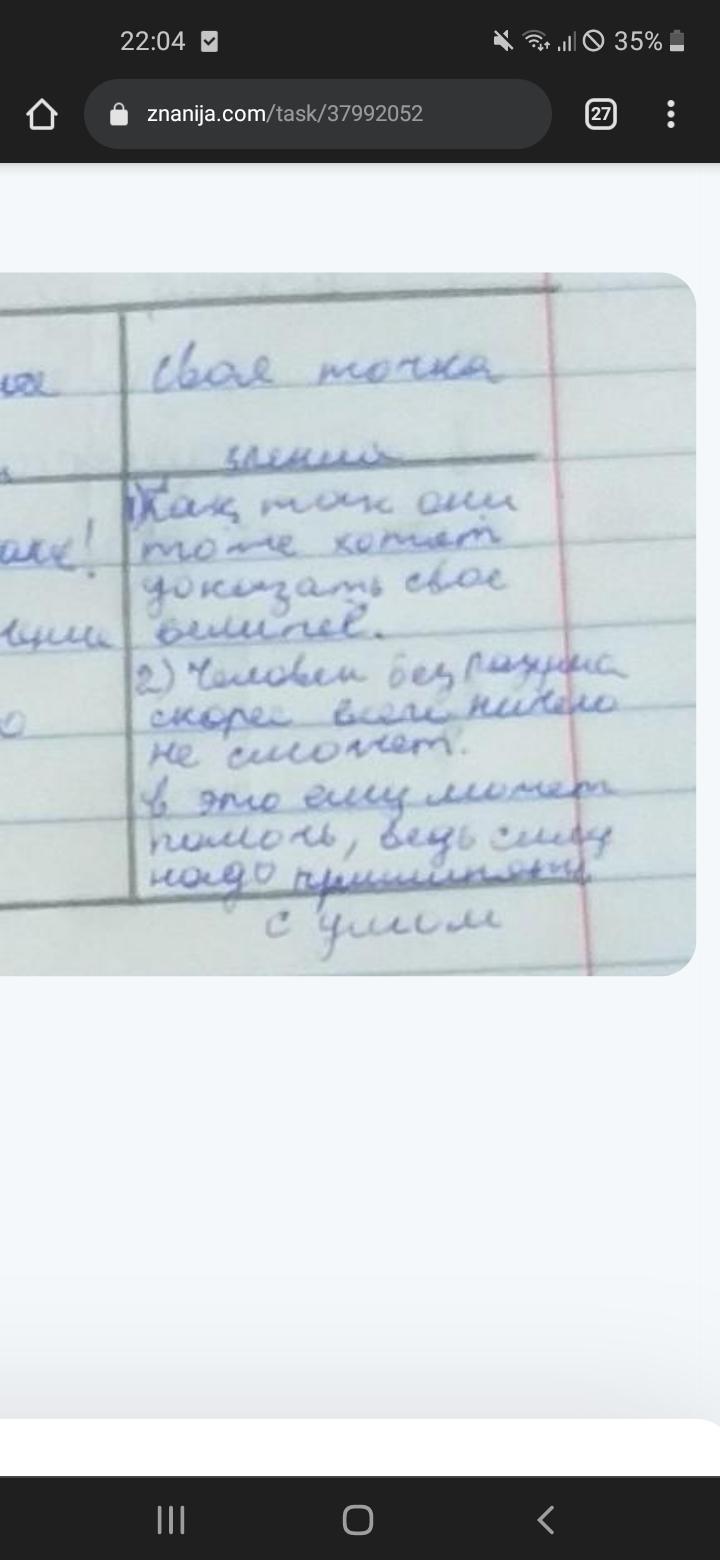 22:04
35%
znanija.com/task/37992052
27
своя точка
зрения
1) Так, так они
аже! тоже хотят
доказать свое
величие.
2) Человек без разума
скорее всего ничего
о
не сможет.
в это ему может
помочь, ведь силу
надо применять
с умом